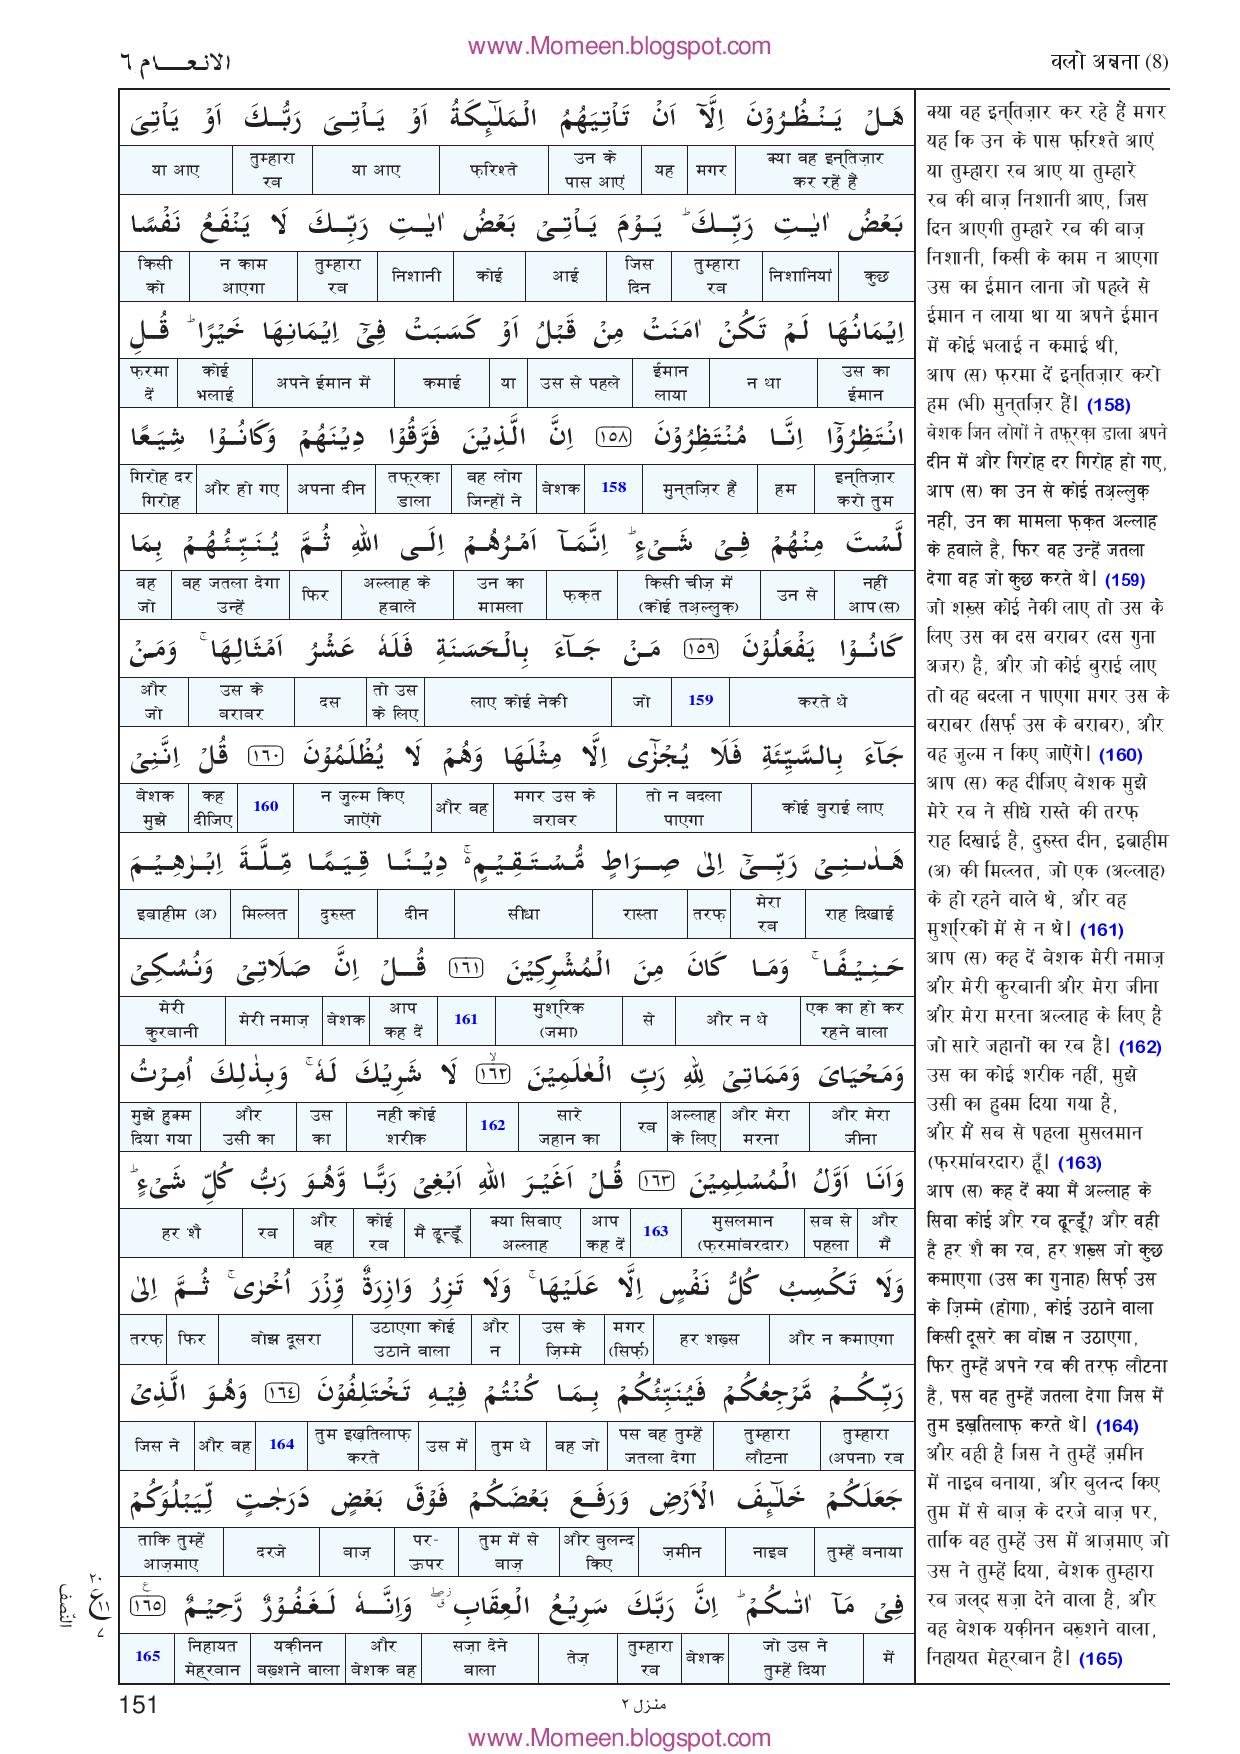 www.Momeen.blogspot.com
الانعام ٦
वलो अन्नना (8)
هَلْ يَنْظُرُوْنَ اِلَّآ اَنْ تَاْتِيَهُمُ الْمَلٰٓىِٕكَةُ اَوْ يَاْتِىَ رَبُّكَ اَوْ يَاْتِىَ
क्या वह इन्तिज़ार कर रहें हैं मगर यह उन के पास आएं फ़रिश्ते या आए तुम्हारा रब या आए
بَعْضُ اٰيٰتِ رَبِّكَ ؕ يَوْمَ يَاْتِىْ بَعْضُ اٰيٰتِ رَبِّكَ لَا يَنْفَعُ نَفْسًا
कुछ निशानियां तुम्हारा रब जिस दिन आई कोई निशानी तुम्हारा रब न काम आएगा किसी को
اِيْمَانُهَا لَمْ تَكُنْ اٰمَنَتْ مِنْ قَبْلُ اَوْ كَسَبَتْ فِىْۤ اِيْمَانِهَا خَيْرًا ؕ قُلِ
उस का ईमान न था ईमान लाया उस से पहले या कमाई अपने ईमान में कोई भलाई फ़रमा दें
انْتَظِرُوْۤا اِنَّا مُنْتَظِرُوْنَ ١٥٨ اِنَّ الَّذِيْنَ فَرَّقُوْا دِيْنَهُمْ وَكَانُوْا شِيَعًا
इन्तिज़ार करो तुम हम मुन्तज़िर हैं 158 बेशक वह लोग जिन्हों ने तफ़्रक़ा डाला अपना दीन और हो गए गिरोह दर गिरोह
لَّسْتَ مِنْهُمْ فِىْ شَىْءٍ ؕ اِنَّمَاۤ اَمْرُهُمْ اِلَى اللّٰهِ ثُمَّ يُنَبِّئُهُمْ بِمَا
नहीं आप(स) उन से किसी चीज़ में (कोई तअ़ल्लुक़) फ़क़त उन का मामला अल्लाह के हवाले फिर वह जतला देगा उन्हें वह जो
كَانُوْا يَفْعَلُوْنَ ١٥٩ مَنْ جَآءَ بِالْحَسَنَةِ فَلَهٗ عَشْرُ اَمْثَالِهَا ۚ وَمَنْ
करते थे 159 जो लाए कोई नेकी तो उस के लिए दस उस के बराबर और जो
جَآءَ بِالسَّيِّئَةِ فَلَا يُجْزٰٓى اِلَّا مِثْلَهَا وَهُمْ لَا يُظْلَمُوْنَ ١٦٠ قُلْ اِنَّنِىْ
कोई बुराई लाए तो न बदला पाएगा मगर उस के बराबर और वह न ज़ुल्म किए जाऐंगे 160 कह दीजिए बेशक मुझे
هَدٰىنِىْ رَبِّىْۤ اِلٰى صِرَاطٍ مُّسْتَقِيْمٍ ۚ دِيْنًا قِيَمًا مِّلَّةَ اِبْرٰهِيْمَ
राह दिखाई मेरा रब तरफ़ रास्ता सीधा दीन दुरुस्त मिल्लत इब्राहीम (अ)
حَنِيْفًا ۚ وَمَا كَانَ مِنَ الْمُشْرِكِيْنَ ١٦١ قُلْ اِنَّ صَلَاتِىْ وَنُسُكِىْ
एक का हो कर रहने वाला और न थे से मुश्रिक (जमा) 161 आप कह दें बेशक मेरी नमाज़ मेरी कुरबानी
وَمَحْيَاىَ وَمَمَاتِىْ لِلّٰهِ رَبِّ الْعٰلَمِيْنَ ١٦٢ ۙ لَا شَرِيْكَ لَهٗ ۚ وَبِذٰلِكَ اُمِرْتُ
और मेरा जीना और मेरा मरना अल्लाह के लिए रब सारे जहान का 162 नहीं कोई शरीक उस का और उसी का मुझे हुक्म दिया गया
وَاَنَا اَوَّلُ الْمُسْلِمِيْنَ ١٦٣ قُلْ اَغَيْرَ اللّٰهِ اَبْغِىْ رَبًّا وَّهُوَ رَبُّ كُلِّ شَىْءٍ ؕ
और मैं सब से पहला मुसलमान (फ़रमांबरदार) 163 आप कह दें क्या सिवाए अल्लाह मैं ढून्डूँ कोई रब और वह रब हर शै
وَلَا تَكْسِبُ كُلُّ نَفْسٍ اِلَّا عَلَيْهَا ۚ وَلَا تَزِرُ وَازِرَةٌ وِّزْرَ اُخْرٰى ۚ ثُمَّ اِلٰى
और न कमाएगा हर शख़्स मगर (सिर्फ़) उस के ज़िम्मे और न उठाएगा कोई उठाने वाला बोझ दूसरा फिर तरफ़
رَبِّكُمْ مَّرْجِعُكُمْ فَيُنَبِّئُكُمْ بِمَا كُنْتُمْ فِيْهِ تَخْتَلِفُوْنَ ١٦٤ وَهُوَ الَّذِىْ
तुम्हारा (अपना) रब तुम्हारा लौटना पस वह तुम्हें जतला देगा वह जो तुम थे उस में तुम इख़्तिलाफ़ करते 164 और वह जिस ने
جَعَلَكُمْ خَلٰٓىِٕفَ الْاَرْضِ وَرَفَعَ بَعْضَكُمْ فَوْقَ بَعْضٍ دَرَجٰتٍ لِّيَبْلُوَكُمْ
तुम्हें बनाया नाइब ज़मीन और बुलन्द किए तुम में से बाज़ पर-ऊपर बाज़ दरजे ताकि तुम्हें आज़माए
فِىْ مَاۤ اٰتٰىكُمْ ؕ اِنَّ رَبَّكَ سَرِيْعُ الْعِقَابِ وَاِنَّهٗ لَغَفُوْرٌ رَّحِيْمٌ ١٦٥
में जो उस ने तुम्हें दिया बेशक तुम्हारा रब तेज़ सज़ा देने वाला और बेशक वह यक़ीनन बख़्शने वाला निहायत मेहरबान 165
क्या वह इन्तिज़ार कर रहे हैं मगर
यह कि उन के पास फ़रिश्ते आएं
या तुम्हारा रब आए या तुम्हारे
रब की बाज़ निशानी आए, जिस
दिन आएगी तुम्हारे रब की बाज़
निशानी, किसी के काम न आएगा
उस का ईमान लाना जो पहले से
ईमान न लाया था या अपने ईमान
में कोई भलाई न कमाई थी,
आप (स) फ़रमा दें इन्तिज़ार करो
हम (भी) मुन्तज़िर हैं। (158)
बेशक जिन लोगों ने तफ़्रक़ा डाला अपने
दीन में और गिरोह दर गिरोह हो गए,
आप (स) का उन से कोई तअ़ल्लुक़
नहीं, उन का मामला फ़क़त अल्लाह
के हवाले है, फिर वह उन्हें जतला
देगा वह जो कुछ करते थे। (159)
जो शख़्स कोई नेकी लाए तो उस के
लिए उस का दस बराबर (दस गुना
अजर) है, और जो कोई बुराई लाए
तो वह बदला न पाएगा मगर उस के
बराबर (सिर्फ़ उस के बराबर), और
वह ज़ुल्म न किए जाऐंगे। (160)
आप (स) कह दीजिए बेशक मुझे
मेरे रब ने सीधे रास्ते की तरफ़
राह दिखाई है, दुरुस्त दीन, इब्राहीम
(अ) की मिल्लत, जो एक (अल्लाह)
के हो रहने वाले थे, और वह
मुश्रिकों में से न थे। (161)
आप (स) कह दें बेशक मेरी नमाज़
और मेरी कुरबानी और मेरा जीना
और मेरा मरना अल्लाह के लिए है
जो सारे जहानों का रब है। (162)
उस का कोई शरीक नहीं, मुझे
उसी का हुक्म दिया गया है,
और मैं सब से पहला मुसलमान
(फ़रमांबरदार) हूँ। (163)
आप (स) कह दें क्या मैं अल्लाह के
सिवा कोई और रब ढून्डूँ? और वही
है हर शै का रब, हर शख़्स जो कुछ
कमाएगा (उस का गुनाह) सिर्फ़ उस
के ज़िम्मे (होगा), कोई उठाने वाला
किसी दूसरे का बोझ न उठाएगा,
फिर तुम्हें अपने रब की तरफ़ लौटना
है, पस वह तुम्हें जतला देगा जिस में
तुम इख़्तिलाफ़ करते थे। (164)
और वही है जिस ने तुम्हें ज़मीन
में नाइब बनाया, और बुलन्द किए
तुम में से बाज़ के दरजे बाज़ पर,
ताकि वह तुम्हें उस में आज़माए जो
उस ने तुम्हें दिया, बेशक तुम्हारा
रब जल्द सज़ा देने वाला है, और
वह बेशक यक़ीनन बख़्शने वाला,
निहायत मेह्रबान है। (165)
٢٠
ع
١١
٧
النّصف
151
منزل ٢
www.Momeen.blogspot.com